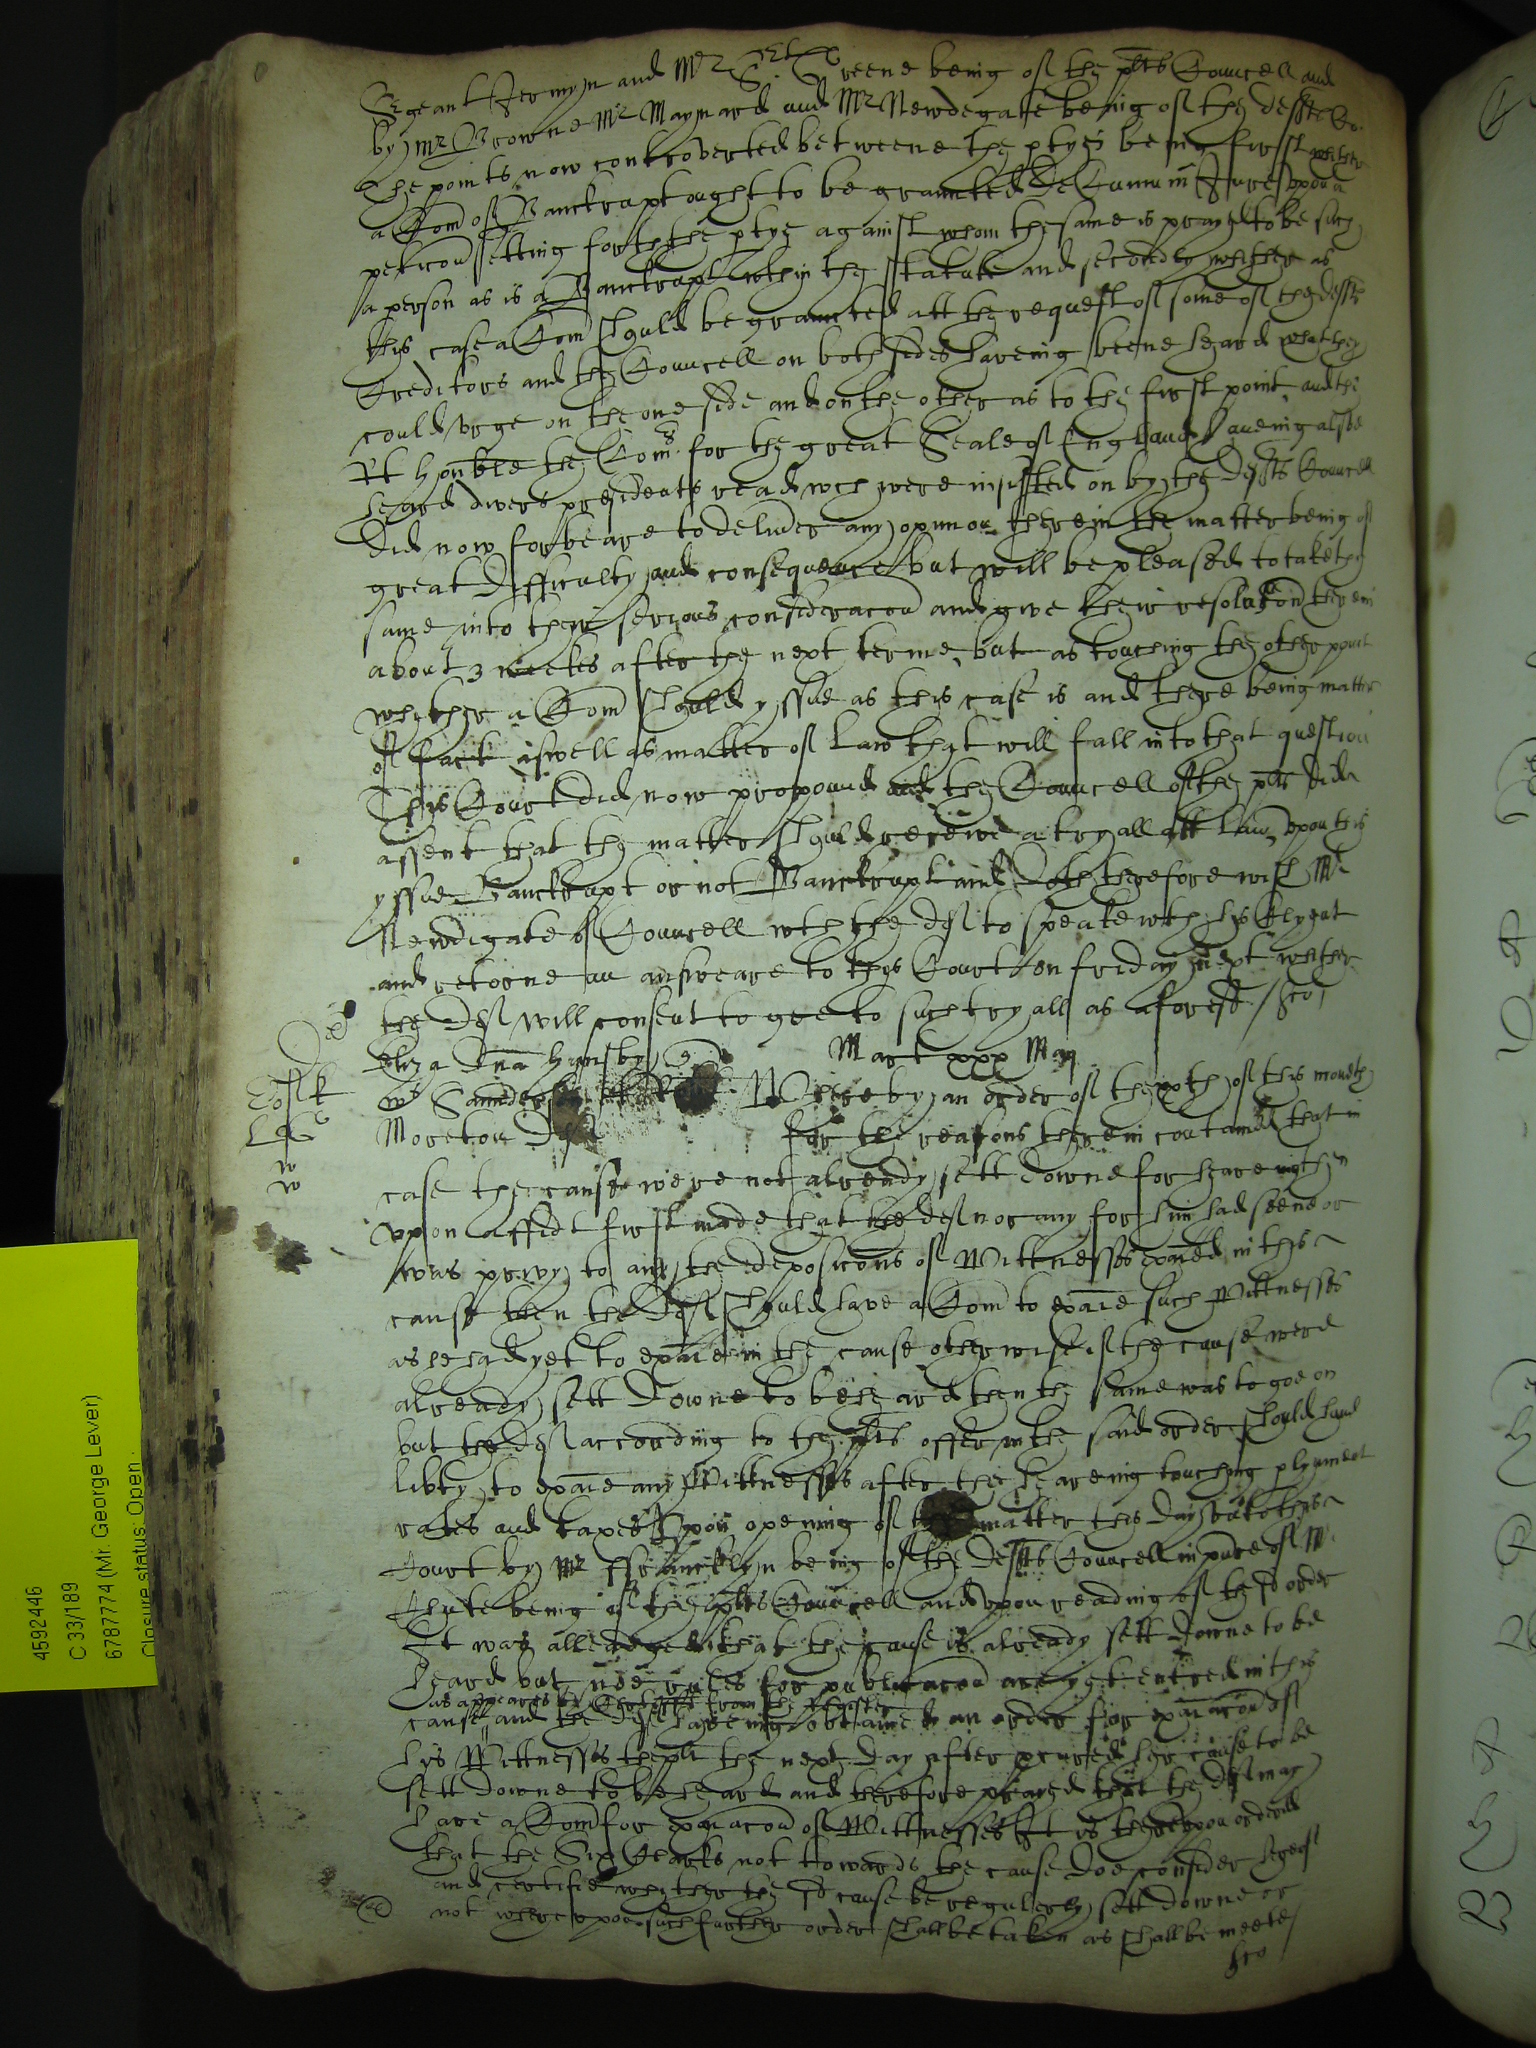 Sergeant Jermyn and Mr Greene being of the plts Councell and
by Mr Browne Mr Maynard and Mr Newdegate being of the defftes Co:
The points now controverted betweene the ptyes being first whither
a Com of Banckrupt ought to be graunted De Cursu in Jure upon a
peticon setting forth the ptye against whom the same is prayed to be such
a person as is a Banckrupt wthin the statute and secondly whither as
this case a Com should be graunted att the request of some of the deffts
Creditors and the Councell on both sides haveing beene heard what they
could urge on the one side and on the other as to the first point and the
Rt honble the Comrs for the great Seale of England haveing alsoe
heard divers presidents read wch were insisted on by the deffts Councell
did now forbeare to deliver any opinion therein the matter being of
great difficulty and consequence but will be pleased to take the
same into their serious consideracon and give their resolucon therein
about 3 weekes after the next terme, but as touching the other point
whither a Com should yssue as this case is and there being matter
of fact aswell as matter of Law that will fall into that question
This Court did now propound and the Councell of the plts did
assent that the matter should receive a tryall att Law, upon this
yssue Banckrupt or not Banckrupt and Doth therefore wish Mr
Newdigate of Councell wth the def to speake wth his Clyent
and retorne an answeare to this Court on friday next whither
the def will consent to goe to such tryall as aforesd /
Eliza Hornsby
Mart xxx May
Where by an order of the xth of this moneth
Moreton Def
For the reasons therein contained that in
case the cause were not already sett downe for heareing then
upon affidt first made that the def nor any for him had seene or
was privy to any the deposicons of Wittnesses exaied in this
cause then the Def should have a Com to exaie such Wittnesses
as he had yet to exaie in the cause otherwise if the cause were
already sett Downe to be heard then the same was to goe on
but the def according to the plts offer in the said order should have
libty to exaie any Wittnesses after the heareing touching
rates and taxes Upon opening of the matter this Day unto this
Court by Mr Francklyn being of the Deffts Councell in pnce of Mr
Chute being of the plts Councell and upon reading of the sd order
It was alleadged that the cause is already sett Downe to be
heard but noe rules for publicacon are yet entred in this
as appeares by Certificate from the Register
cause and the Def haveing obtained an order for exaiacon of
his Wittnesses the plt the next day after procured her cause to be
sett downe to be heard and therefore prayed that the def may
have a Com for exaiacon of Wittnesses It is thereupon ordered
that the Six Clearks not towards the cause doe consider hereof
and certifie whither the sd cause be regulerly sett downe or
not whereupon such further order shall be taken as shall be meete /
4592446
C 33/189
6787774 (Mr. George Lever)
Closure status: Open